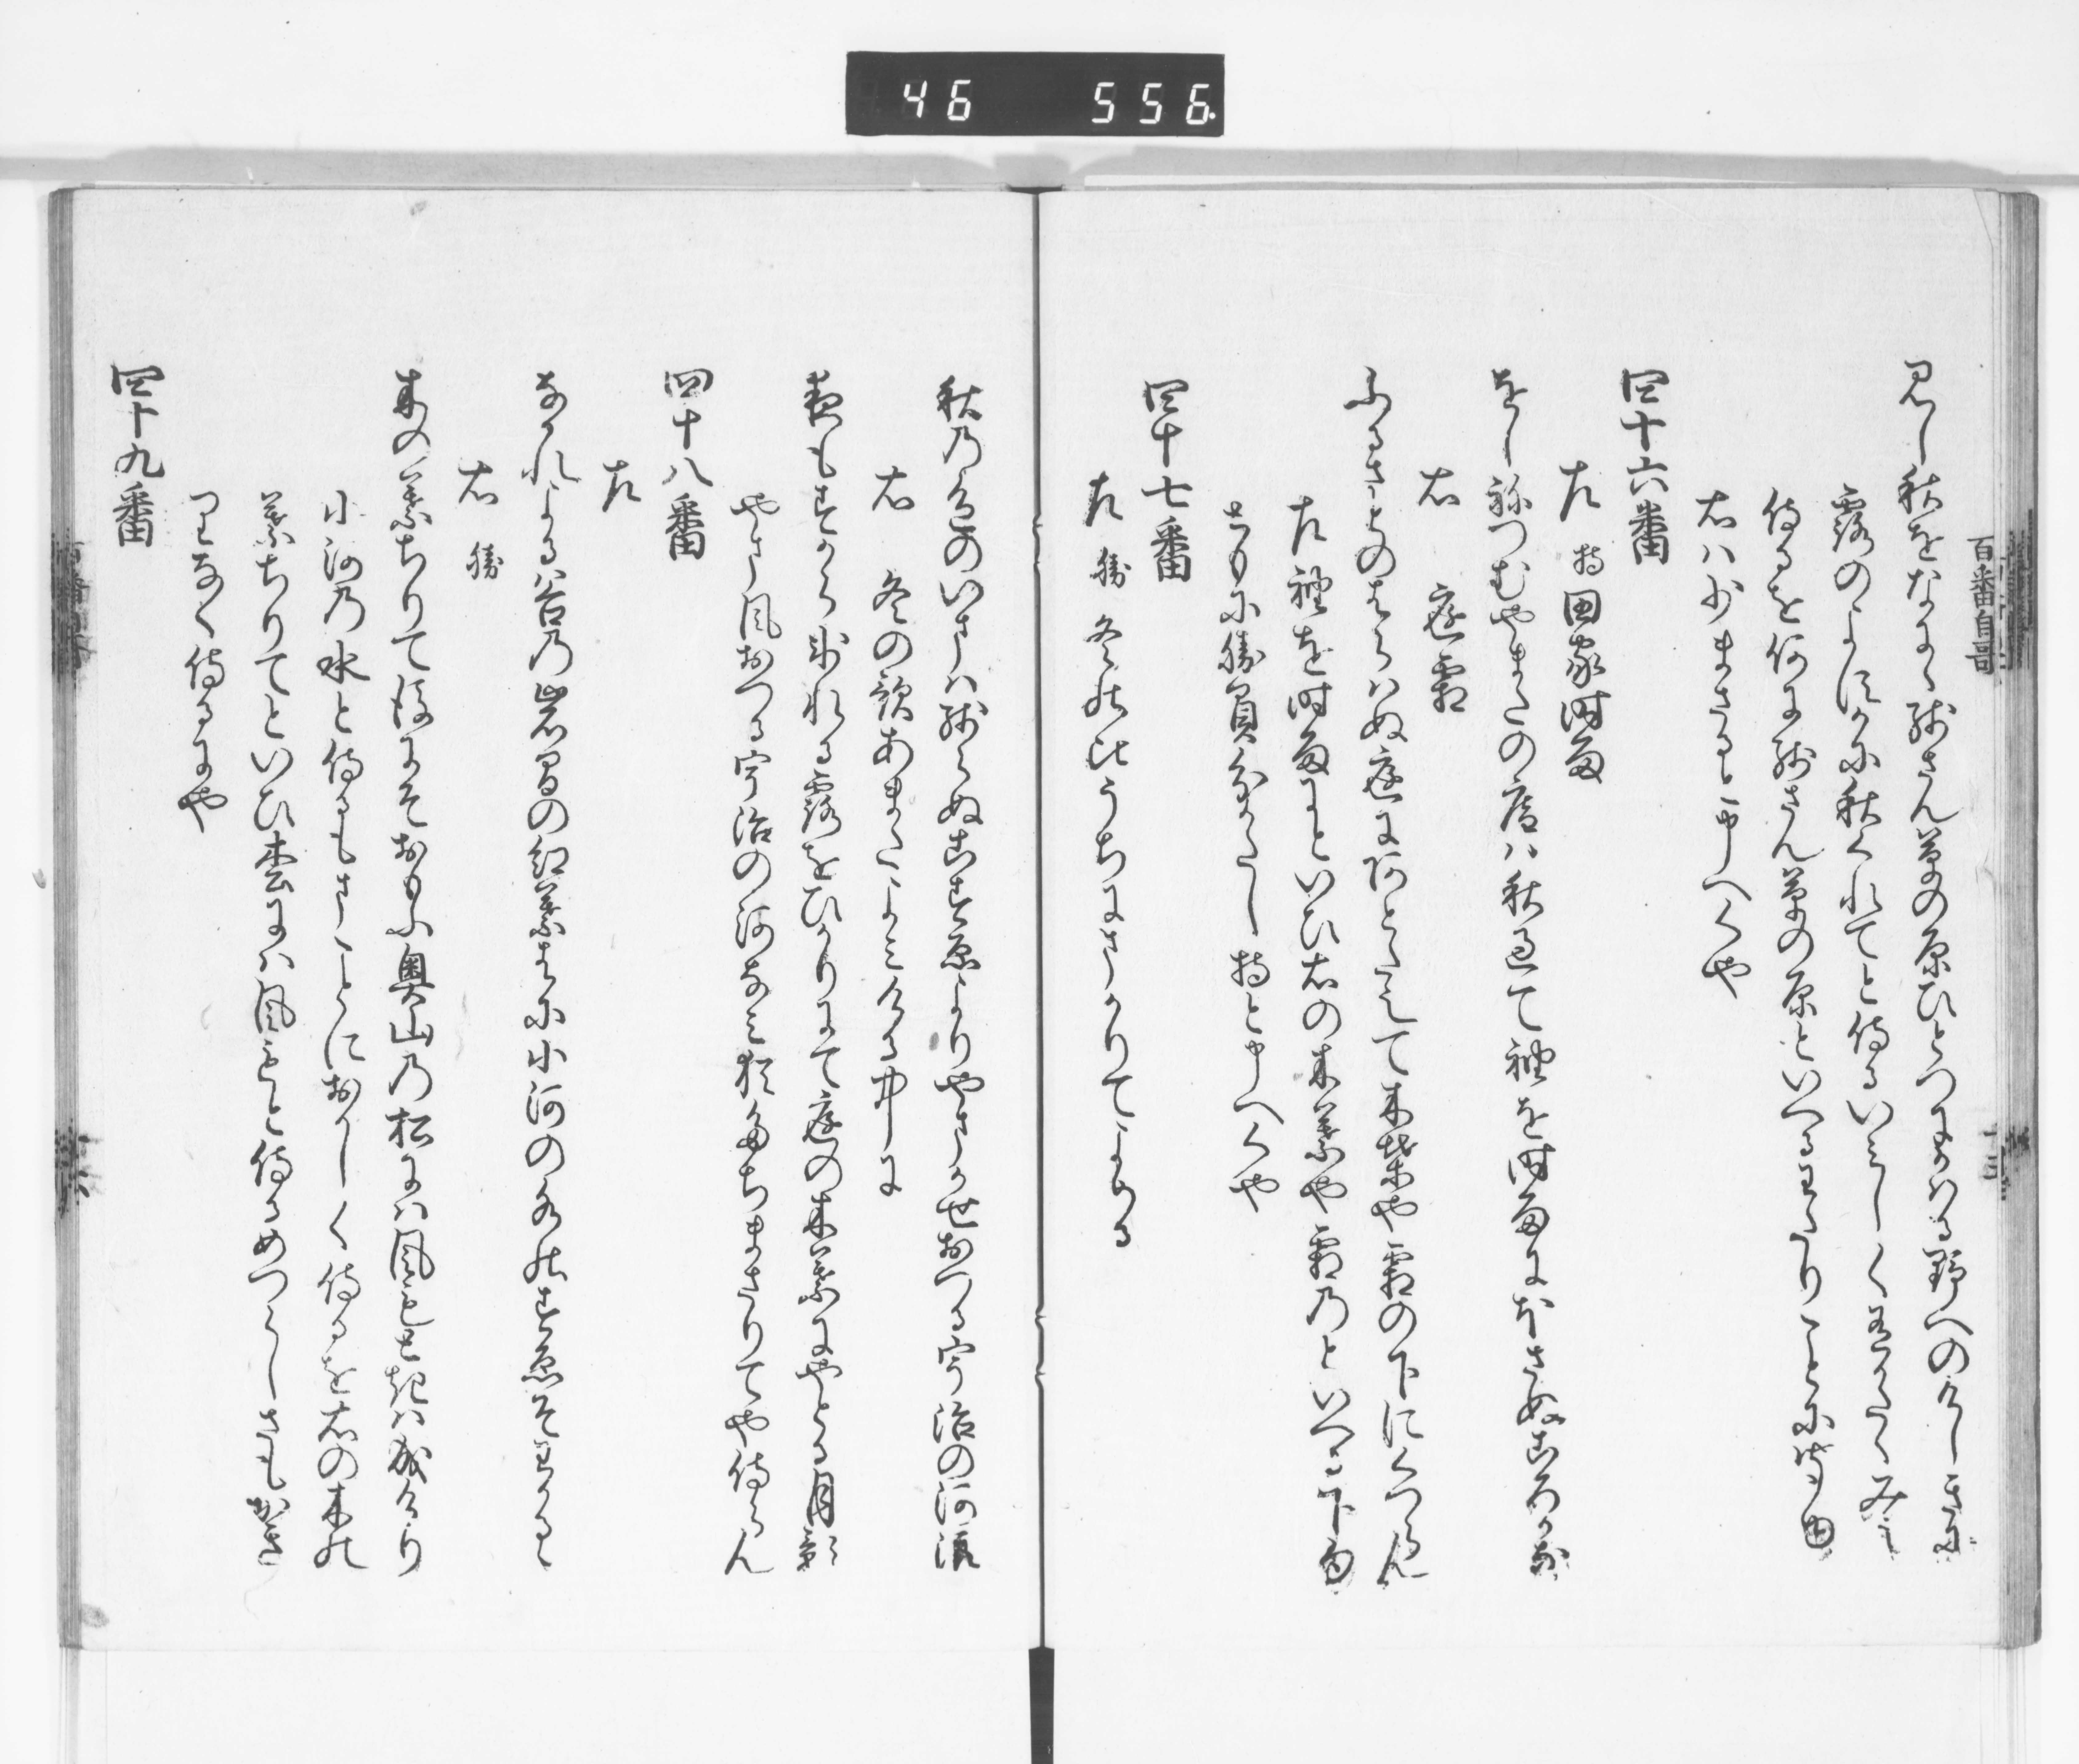 46 556
百番自哥
見し秋をなにゝ残さん草の原ひとつにかはる野へのけしきに
露のよすかに秋くれてと侍るいみしく有かたくみえ
侍るを何に残さん草の原といへるわたりことに侍る由
右は少まさると申へくや
四十六番
左 持 田家時雨
をしねつむやまたの庵は秋過て袖を時雨にほさぬころかな
右 庭霜
ふるさとのはらはぬ庭にあとたえて木葉や霜の下にくつらん
左袖を時雨にといひ右の木葉や霜乃といへる下句
ともに勝負分かたし持と申へくや
四十七番
左 勝 冬のうちにさかりてよめる
秋乃色のいさは残らぬこすゑよりやまかせおつる宇治の河浪
右 冬の歌あまたよみける中に
夜もすから氷れる露をひかりにて庭の木葉にやとる月影
やま風おつる宇治の河なみ猶たちまさりてや侍らん
四十八番
左
なかれよる谷乃岩まの紅葉はに小河の水のすゑそわかるゝ
右 勝
木の葉ちりて後にそおもふ奥山乃松には風もときは成けり
小河乃水と侍るもさることにおかしく侍るを右の木の
葉ちりてといひ松には風もと侍るめつらしさもかき
りなく侍るにや
四十九番